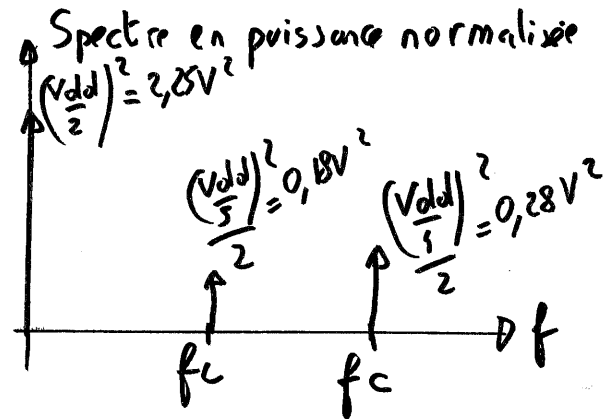 Spectre en puissance normalisée
(Vdd/2)² = 2,25V²
(Vdd/5)²/2 = 0,18V²
(Vdd/4)²/2 = 0,28V²
f
fL
fc